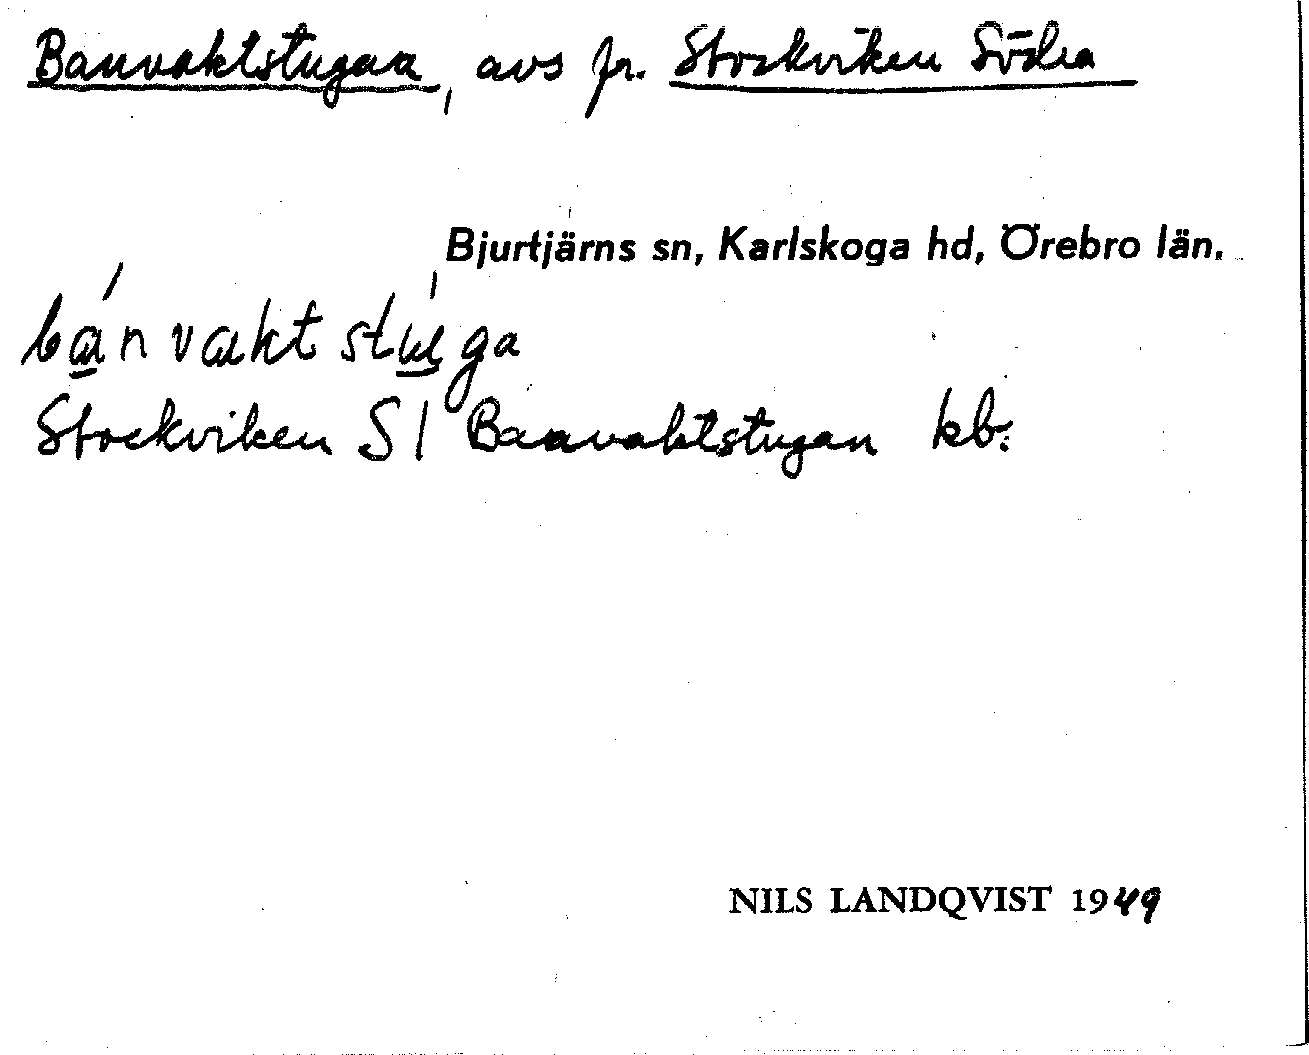 Banvaktstugan, avs fr. Stockviken Södra
Bjurtjärns sn, Karlskoga hd, Örebro län.
bánvaktstúga
Stockviken S / Banvaktstugan kb.
NILS LANDQVIST 1949